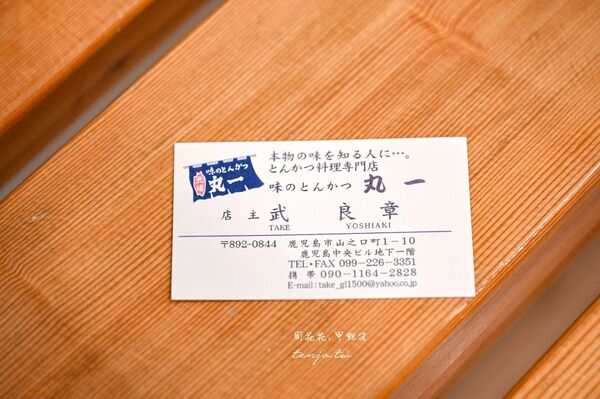 本物の味を知る人に…。
とんかつ料理専門店
味のとんかつ 丸一
味のとんかつ
丸一
店 主 武 良 章
TAKE YOSHIAKI
〒892-0844 鹿児島市山之口町1-10
鹿児島中央ビル地下一階
TEL・FAX 099-226-3351
携 帯 090-1164-2828
E-mail:take_gl1500@yahoo.co.jp
周花花,甲飽沒
tenjo.tw